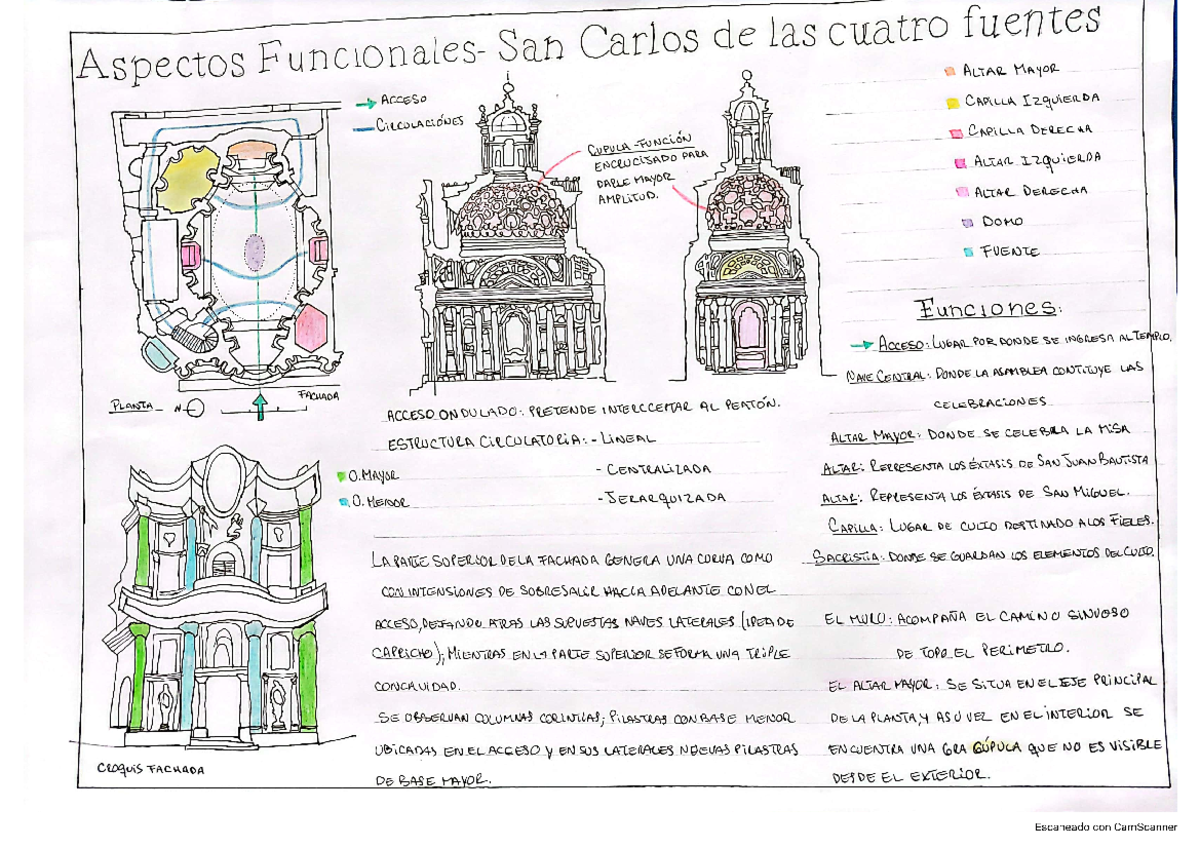 Aspectos Funcionales- San Carlos de las cuatro fuentes
ACCESO
CIRCULACIÓNES
CUPULA -FUNCIÓN
ENCRUCISADO PARA
DARLE MAYOR
AMPLITUD.
ALTAR MAYOR
CAPILLA IZQUIERDA
CAPILLA DERECHA
ALTAR IZQUIERDA
ALTAR DERECHA
DOMO
FUENTE
PLANTA N
FACHADA
ACCESO ONDULADO: PRETENDE INTERCCEPTAR AL PEATÓN.
ESTRUCTURA CIRCULATORIA: - LINEAL
- CENTRALIZADA
- JERARQUIZADA
O. MAYOR
O. MENOR
LA PARTE SUPERIOR DE LA FACHADA GENERA UNA CURVA COMO
CON INTENSIONES DE SOBRESALIR HACIA ADELANTE CON EL
ACCESO, DEJANDO ATRAS LAS SUPUESTAS NAVES LATERALES (IDEA DE
CAPRICHO); MIENTRAS EN LA PARTE SUPERIOR SE FORMA UNA TRIPLE
CONCAVIDAD.
SE OBSERVAN COLUMNAS CORINTIAS; PILASTRAS CON BASE MENOR
UBICADAS EN EL ACCESO Y EN SUS LATERALES NUEVAS PILASTRAS
DE BASE MAYOR.
CROQUIS FACHADA
Funciones:
ACCESO: LUGAR POR DONDE SE INGRESA AL TEMPLO.
NAVE CENTRAL: DONDE LA ASAMBLEA CONTITUYE LAS
CELEBRACIONES
ALTAR MAYOR: DONDE SE CELEBRA LA MISA
ALTAR: REPRESENTA LOS ÉXTASIS DE SAN JUAN BAUTISTA
ALTAR: REPRESENTA LOS ÉXTASIS DE SAN MIGUEL.
CAPILLA: LUGAR DE CULTO DESTINADO A LOS FIELES.
SACRISTIA: DONDE SE GUARDAN LOS ELEMENTOS DEL CULTO.
EL MURO: ACOMPAÑA EL CAMINO SINUOSO
DE TODO EL PERIMETRO.
EL ALTAR MAYOR: SE SITUA EN EL EJE PRINCIPAL
DE LA PLANTA, Y A SU VEZ EN EL INTERIOR SE
ENCUENTRA UNA GRA CÚPULA QUE NO ES VISIBLE
DESDE EL EXTERIOR.
Escaneado con CamScanner